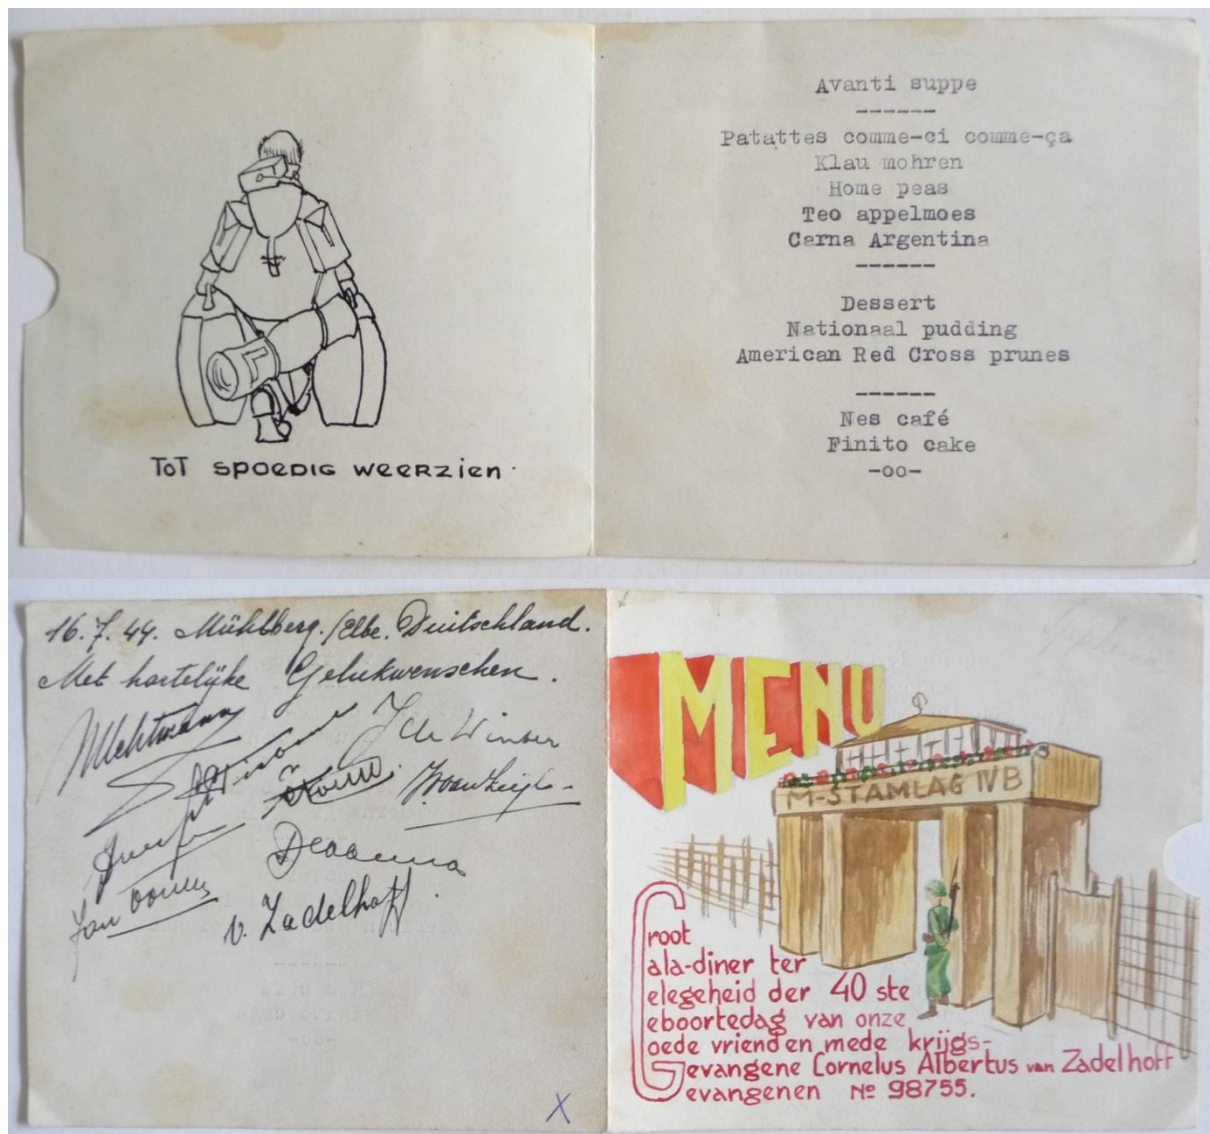 Avanti suppe
------
Patattes comme-ci comme-ça
Klau mohren
Home peas
Teo appelmoes
Carna Argentina
------
Dessert
Nationaal pudding
American Red Cross prunes
------
Nes café
Finito cake
-oo-
TOT SPOEDIG WEERZIEN.
16.7.44. Mühlberg./Elbe. Duitschland.
Met hartelijke Gelukwenschen.
J de Winter
Jan
v. Zadelhoff.
X
MENU
M-STAMLAG IV B
Groot
Gala-diner ter
Gelegeheid der 40 ste
Geboortedag van onze
Goede vriend en mede krijgs-
Gevangene Cornelus Albertus van Zadelhoff
Gevangenen No 98755.